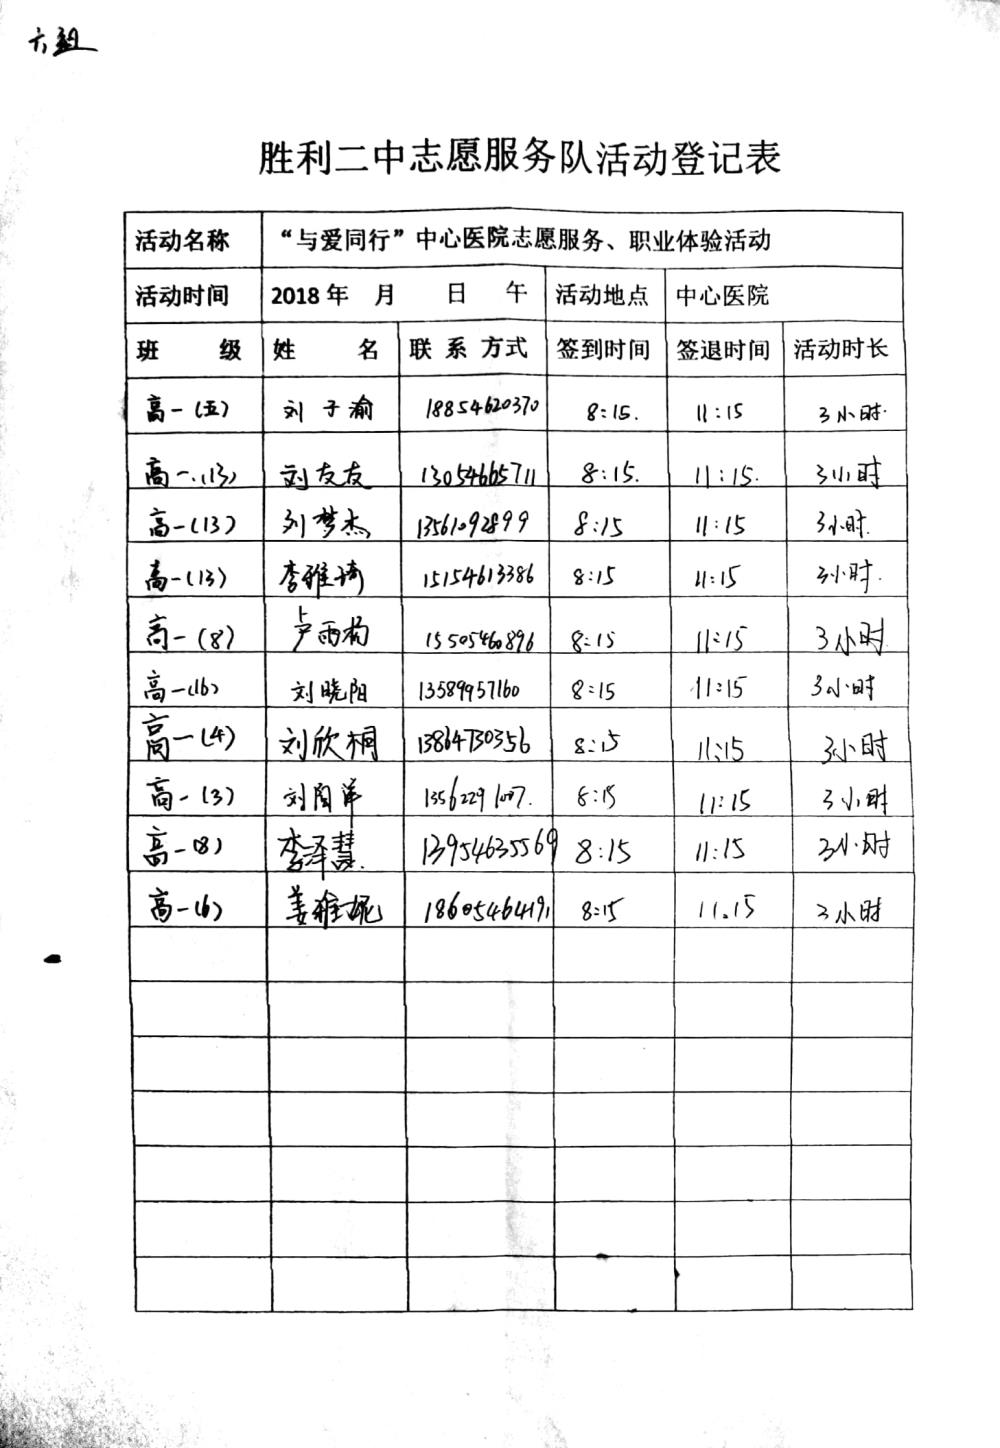 六组
胜利二中志愿服务队活动登记表
活动名称 “与爱同行”中心医院志愿服务、职业体验活动
活动时间 2018年 月 日 午 活动地点 中心医院
班 级 姓 名 联系方式 签到时间 签退时间 活动时长
高一(五) 刘子渝 18854620370 8:15. 11:15 3小时.
高一.(13) 刘友友 13054665711 8:15. 11:15. 3小时
高一(13) 刘梦杰 13561092899 8:15 11:15 3小时.
高一(13) 李雅琦 15154613386 8:15 11:15 3小时.
高一(8) 卢雨杨 15505460896 8:15 11:15 3小时
高一(16) 刘晓阳 13589957160 8:15 11:15 3小时
高一(4) 刘欣桐 13864730356 8:15 11:15 3小时
高一(3) 刘闰洋 13562291007. 8:15 11:15 3小时
高一(8) 李泽慧. 13954635569 8:15 11:15 3小时
高一(6) 姜雅妮 18605464191 8:15 11.15 3小时